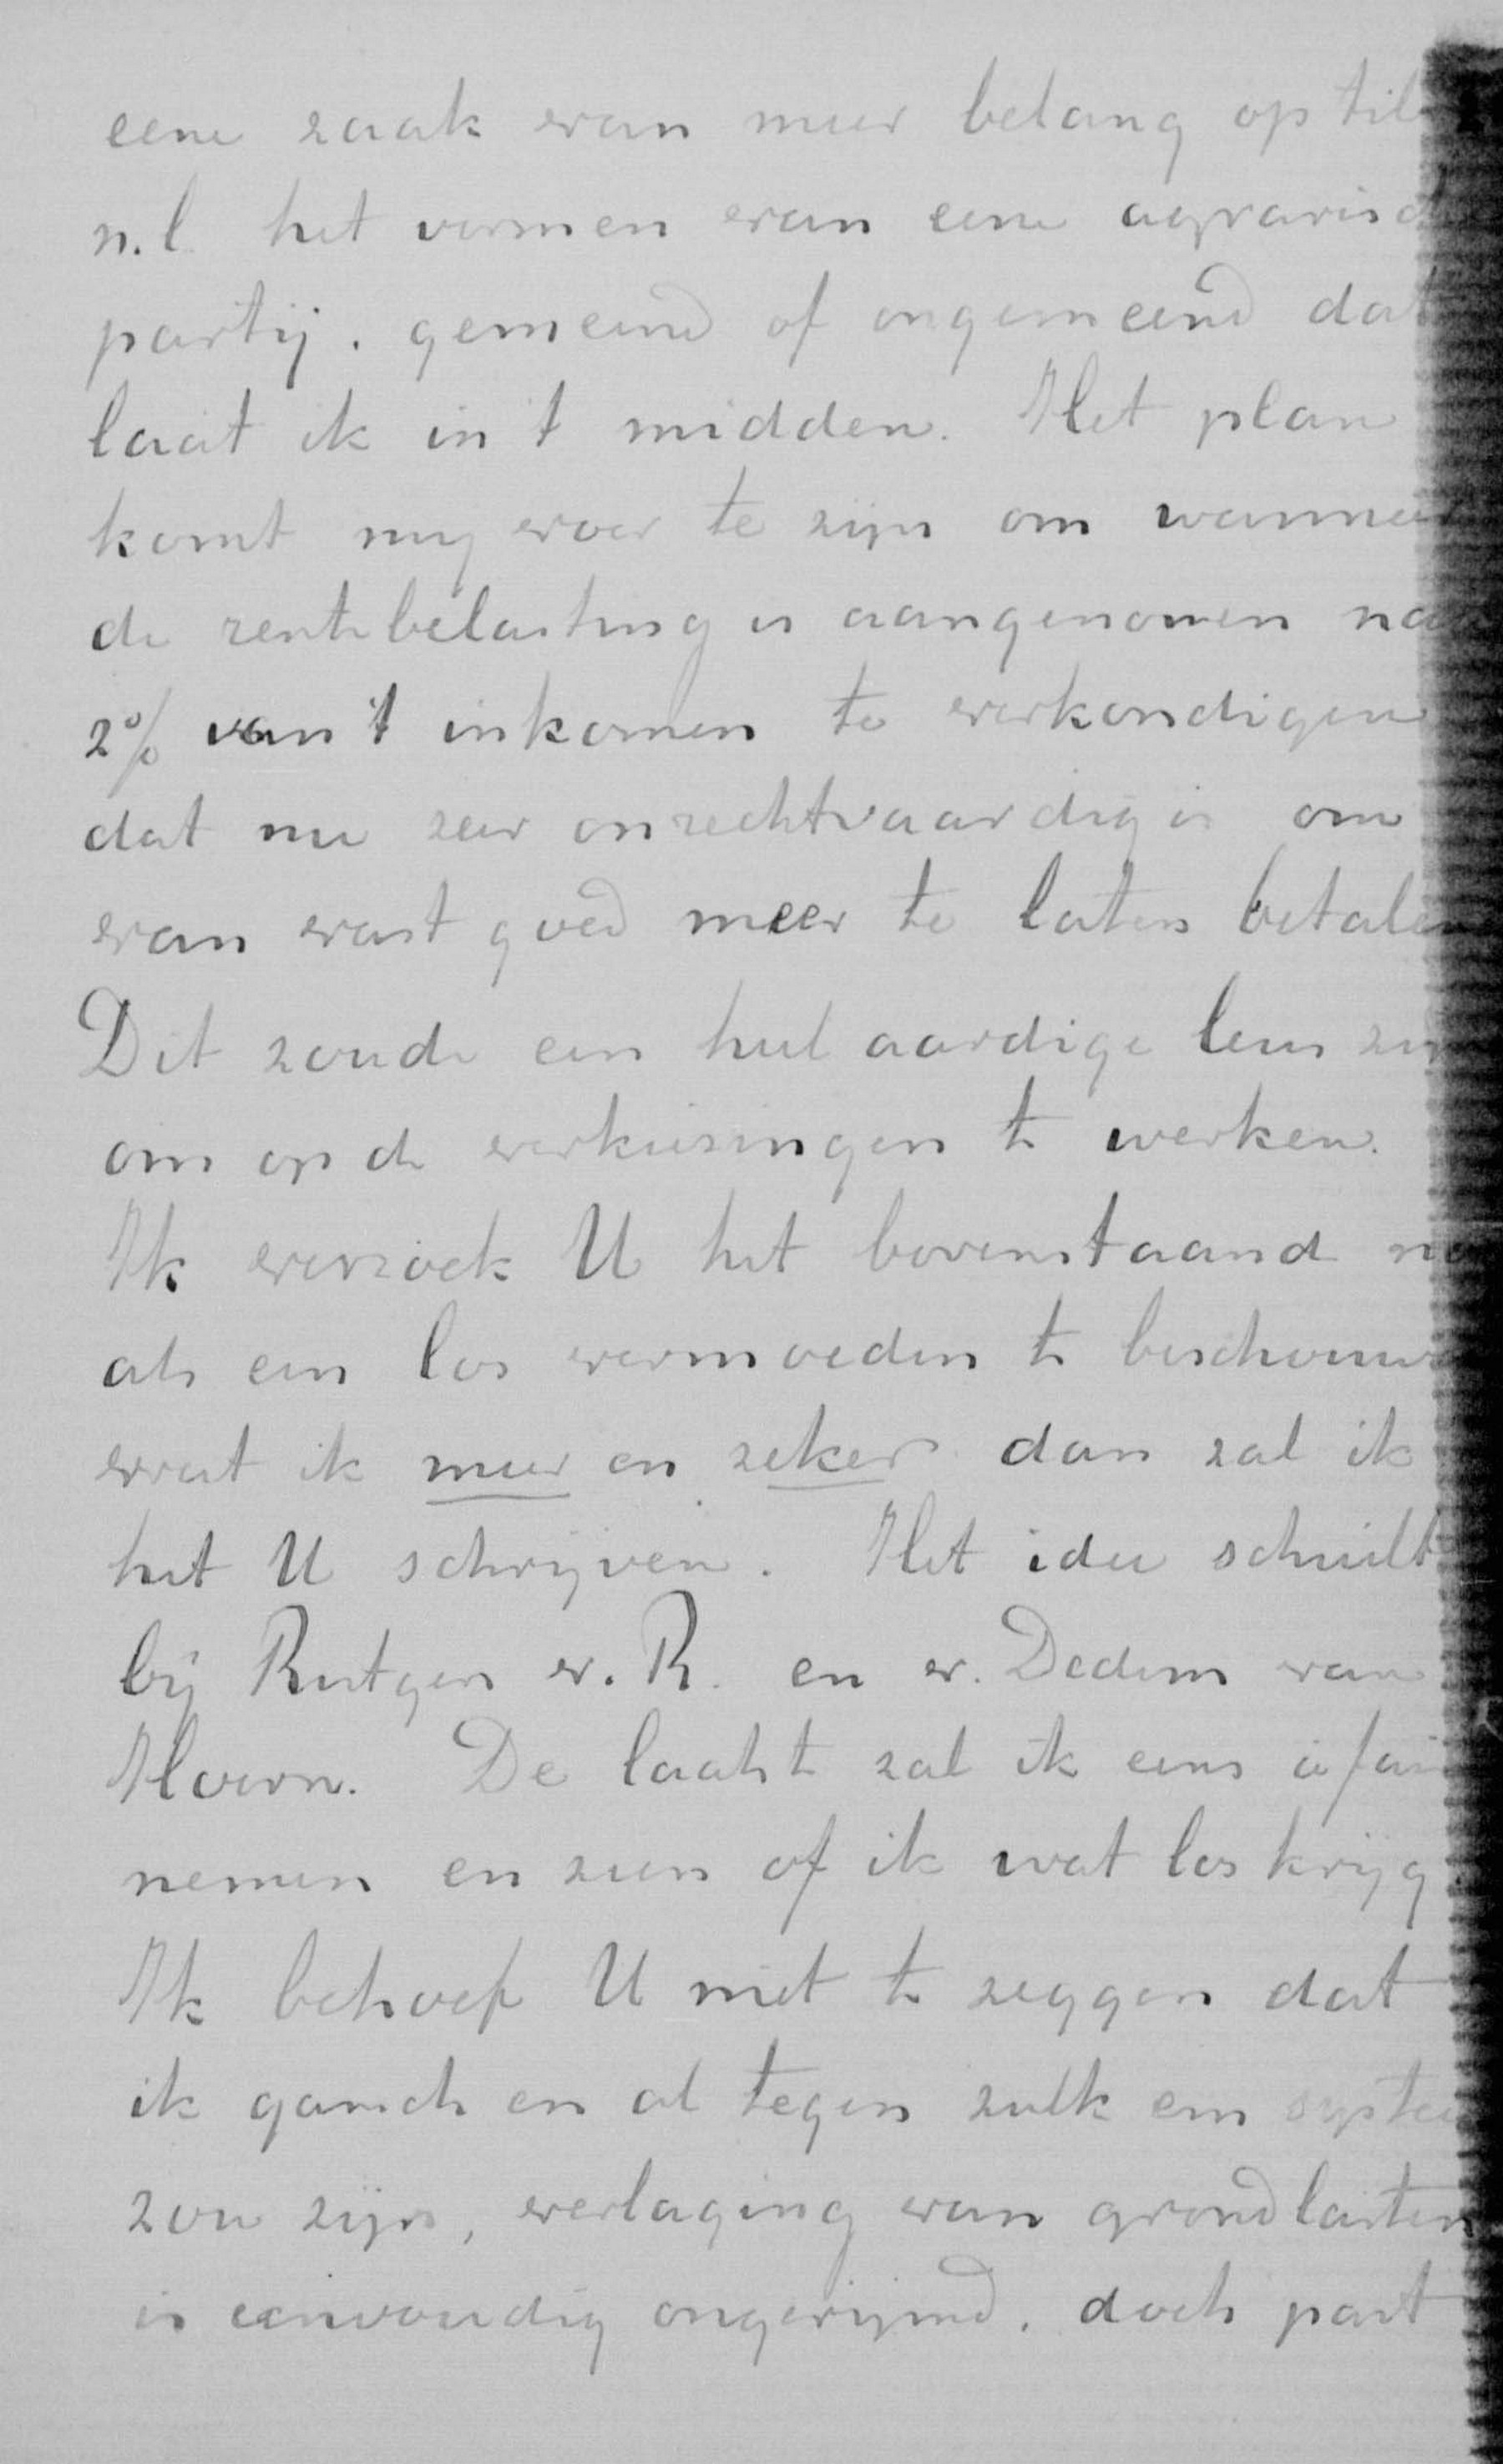 eene zaak van meer belang op til
n.l. het vormen van eene agrarisch
partij. gemeend of ongemeend dat
laat ik in 't midden. Het plan
komt mij voor te zijn om wanneer
de rentebelasting is aangenomen
2% van 't inkomen te verkondigen
dat nu zeer onrechtvaardig is om
van vast goed meer te laten betalen
Dit zoude een heel aardige leus zijn
om op de verkiezingen te werken.
Ik verzoek U het bovenstaand
als een los vermoeden te beschouwen
weet ik meer en zeker dan zal ik
het U schrijven. Het idee schuilt
bij Rutgers v. R. en v. Dedem van
Hoorn. De laatste zal ik eens
nemen en zien of ik wat los krijg
Ik behoef U niet te zeggen dat
ik gansch en al tegen zulk een systeem
zou zijn, verlaging van grondlasten
is eenvoudig ongerijmd. doch part